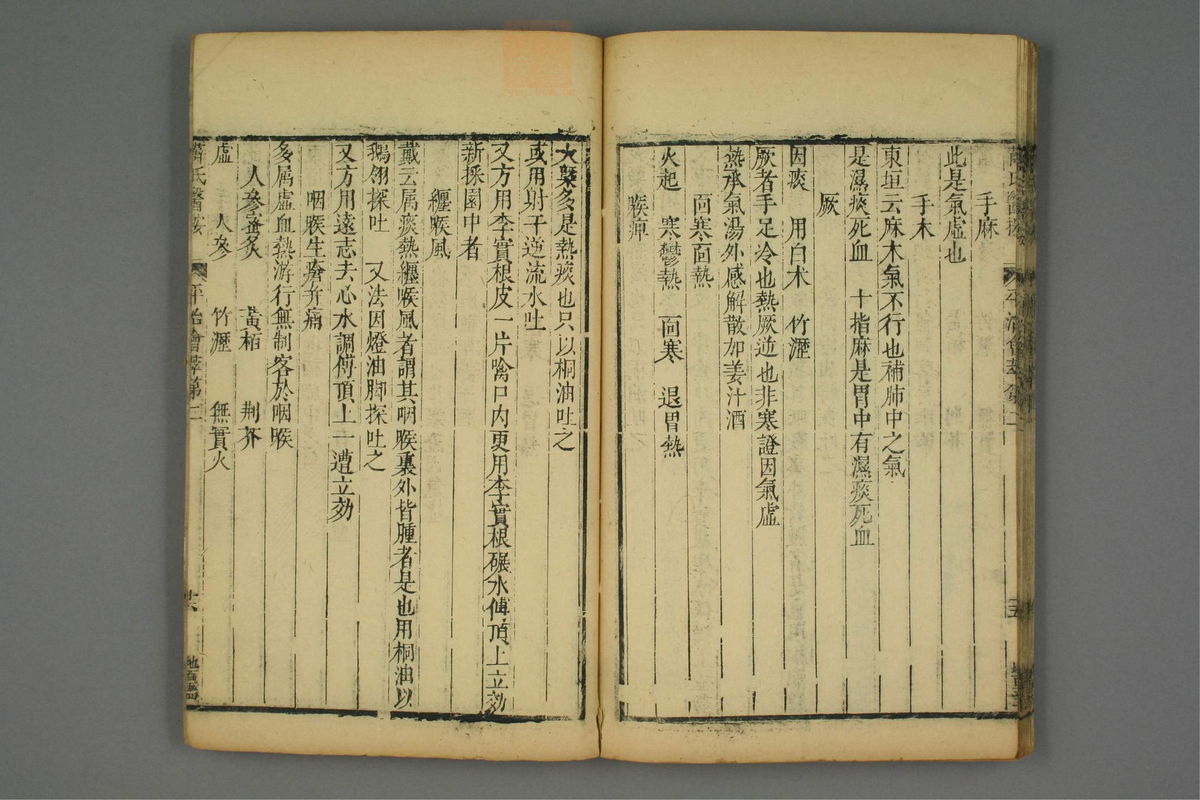 手麻
此是氣虛也
手木
東垣云麻木氣不行也補肺中之氣
是濕痰死血　十指麻是胃中有濕痰死血
厥
因痰　用白术　竹瀝
厥者手足冷也熱厥逆也非寒證因氣虛
熱承氣湯外感解散加姜汁酒
面寒面熱
火起　寒鬱熱　面寒　退胃熱
喉痺
大槩多是熱痰也只以桐油吐之
或用射干逆流水吐
又方用李實根皮一片噙口內更用李實根碾水傅頂上立効
新採園中者
纏喉風
戴云属痰熱纏喉風者謂其咽喉裏外皆腫者是也用桐油以
鵝翎探吐　又法因燈油脚探吐之
又方用遠志去心水調傅頂上一遭立効
咽喉生瘡并痛
多属虛血熱游行無制客於咽喉
人參蜜炙　黃栢　荆芥
虛　人參　竹瀝　無實火